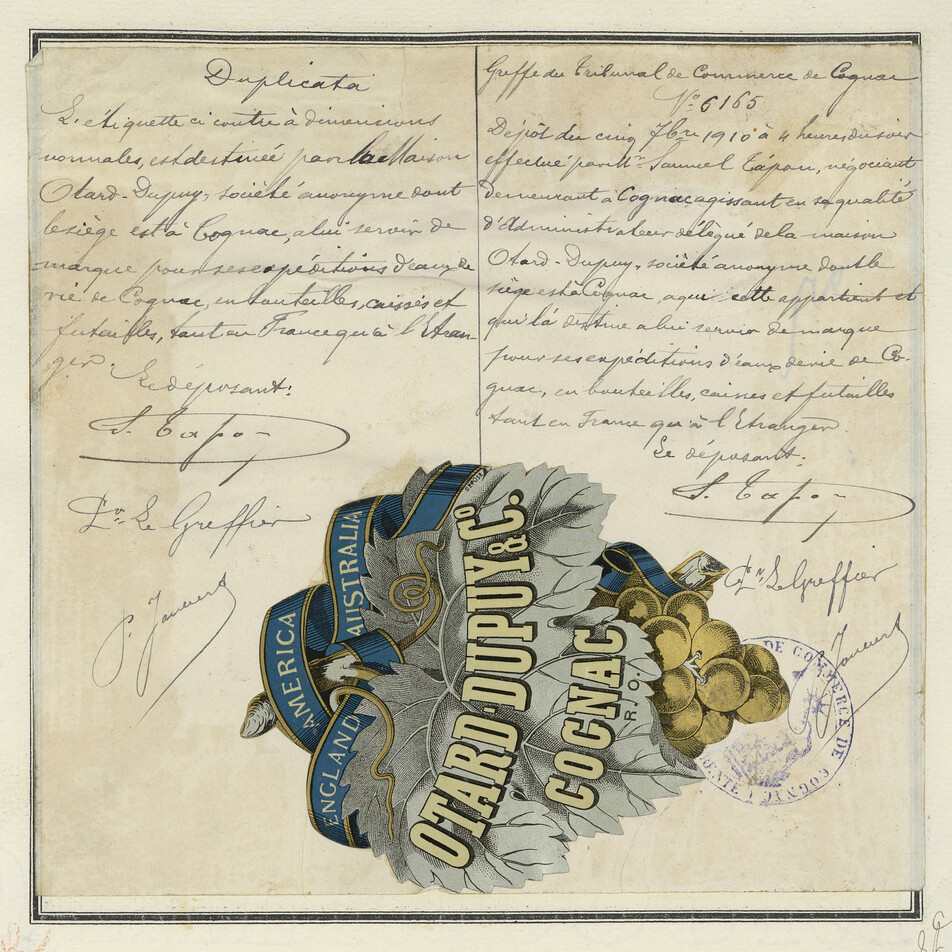 Duplicata
L'étiquette ci contre à dimensions
normales, est destinée par la Maison
Otard-Dupuy, société anonyme dont
le siège est à Cognac, à lui servir de
marque pour ses expéditions d'eaux de
vie de Cognac, en bouteilles, caisses et
futailles, tant en France qu'à l'Etran-
ger.
Le déposant:
S. Tapon
Pr. Le Greffier
Greffe du Tribunal de Commerce de Cognac
No 6165
Dépôt du cinq 7bre 1910 à 4 heures du soir
effectué par Mr. Samuel Tapon, négociant
demeurant à Cognac agissant en sa qualité
d'Administrateur délégué de la maison
Otard-Dupuy, société anonyme dont le
siège est à Cognac, à qui cette appartient et
qui là destine à lui servir de marque
pour ses expéditions d'eaux de vie de Co-
gnac, en bouteilles, caisses et futailles
tant en France qu'à l'Etranger.
Le déposant:
S. Tapon
Pr. Le Greffier
AUSTRALIA
AMERICA
ENGLAND
OTARD-DUPUY & Co.
COGNAC
R.J.O.
DE COMMERCE DE COGNAC